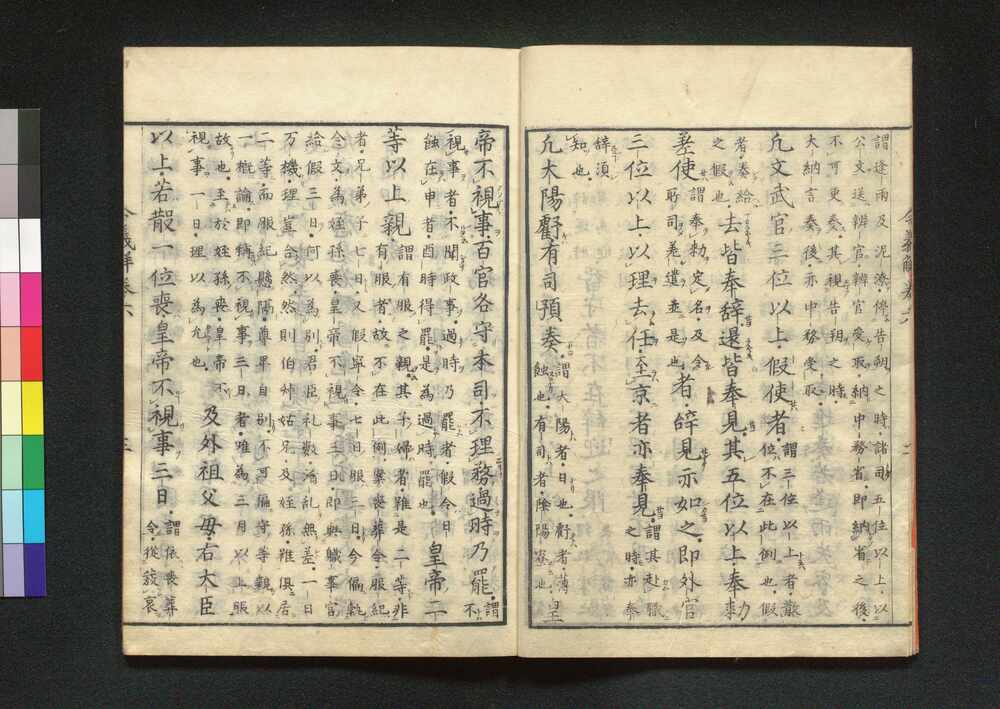 謂逢雨及泥潦停告朔之時諸司五位以上以
公文送辨官辨官受取納中務省即納省之後
不可更奏其視告朔之時
大納言奏後亦中務受取
凡文武官三位以上假使者謂三位以上者散
位不在此例也假
者奏給
之假也去皆奉辭還皆奉見其五位以上奉勅
差使謂奉勅定名及令
所司差遣並是也者辭見亦如之即外官
三位以上以理去任至京者亦奉見謂其赴職
之時亦奉
辭須
知也
凡大陽虧有司預奏謂大陽者日也虧者薄
蝕也有司者陰陽寮也皇
帝不視事百官各守本司不理務過時乃罷謂
不
視事者不聞政事過時乃罷者假令日
蝕在申者酉時得罷是為過時罷也皇帝二
等以上親謂有服之親其子婦者雖是二等非
有服者故不在此例案喪葬令服紀
者兄弟子七日又假寧令七日服三日今偏執
令文為姪孫喪皇帝不視事三日即與職事官
給假三日何以為別君臣礼數濟乱無差一日
万機理豈合然然則伯叔姑兄及姪孫雖俱居
二等而服紀懸隔尊卑自別不可偏守等親以
一概論即稱不視事三日者唯為三月以上服
故也至於姪孫喪皇帝不
視事一日理以為允也及外祖父母右大臣
以上若散一位喪皇帝不視事三日謂依喪葬
令從發哀
令義解卷六
二
令義解卷六
三